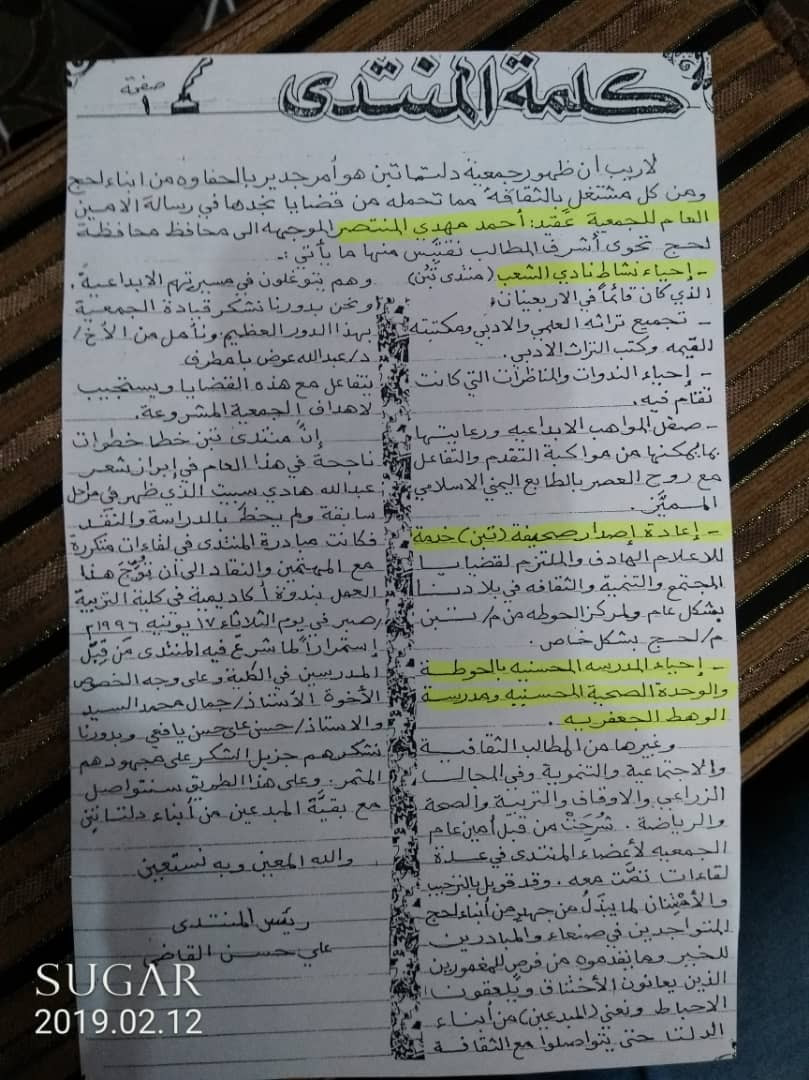 كلمة المنتدى
صفحة
١
لاريب أن ظهور جمعية دلتا تبن هو أمر جدير بالحفاوه من ابناء لحج
ومن كل مشتغل بالثقافة مما تحمله من قضايا نجدها في رسالة الامين
العام للجمعية عقيد: أحمد مهدي المنتصر الموجهه الى محافظ محافظة
لحج تحوى أشرف المطالب نقتبس منها ما يأتي :-
- إحياء نشاط نادي الشعب (منتدى تبن)
الذي كان قائماً في الاربعينات.
- تجميع تراثه العلمي والادبي ومكتبته
القيمه وكتب التراث الادبي.
- إحياء الندوات والمناظرات التي كانت
تقام فيه.
- صقل المواهب الابداعيه ورعايتها
بما يمكنها من مواكبة التقدم والتفاعل
مع روح العصر بالطابع اليمني الاسلامي
المميَّز.
- إعادة إصدار صحيفة (تبن) خدمة
للاعلام الهادف والملتزم لقضايا
المجتمع والتنمية والثقافه في بلادنا
بشكل عام ولمركز الحوطه من م/ تبن
م/ لحج بشكل خاص.
- إحياء المدرسه المحسنيه بالحوطة
والوحدة الصحية المحسنيه ومدرسة
الوهط الجعفريه.
وغيرها من المطالب الثقافية
والاجتماعية والتنموية وفي المجال
الزراعي والاوقاف والتربية والصحة
والرياضة. شرحت من قبل أمين عام
الجمعيه لأعضاء المنتدى في عدة
لقاءات تمَّت معه. وقد قوبل بالترحيب
والأمتنان لما يبذل من جهد من أبناء لحج
المتواجدين في صنعاء والمبادرين
للخير وما يقدموه من فرص للمغمورين
الذين يعانون الأختناق ويلعقون
الاحباط ونعني (المبدعين) من أبناء
الدلتا حتى يتواصلوا مع الثقافة
وهم يتوغلون في مسيرتهم الابداعية.
ونحن بدورنا نشكر قيادة الجمعية
بهذا الدور العظيم. ونأمل من الأخ/
د/ عبدالله عوض بامطرف
نتفاعل مع هذه القضايا ويستجيب
لاهداف الجمعية المشروعة.
إنَّ منتدى تبن خطا خطوات
ناجحة في هذا العام في إبراز شعر
عبدالله هادي سبيت الذي ظهر في مراحل
سابقة ولم يحظ بالدراسة والنقد
فكانت مبادرة المنتدى في لقاءات متكررة
مع المهتمين والنقاد الى أن توَّج هذا
العمل بندوة أكاديمية في كلية التربية
/صبر في يوم الثلاثاء ١٧ يونيه ١٩٩٦م
إستمراراً لما شرع فيه المنتدى من قِبَل
المدرسين في الكلية وعلى وجه الخصوص
الأخوة الأستاذ/ جمال محمد السيد
والاستاذ/ حسن علي حسن يافعي وبدورنا
نشكرهم جزيل الشكر على مجهودهم
المثمر. وعلى هذا الطريق سنتواصل
مع بقيَّة المبدعين من أبناء دلتا تبن
والله المعين وبه نستعين
رئيس المنتدى
علي حسن القاضي
SUGAR
2019.02.12